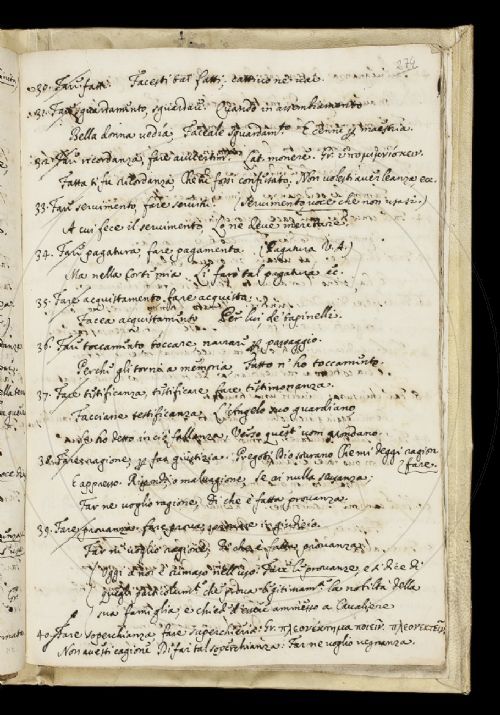 272
30. Fare fatti Facesti tai fatti, cattivo ne vai.
31. Fare sguardamento, sguardare. Quando in assembiamento
Bella donna vedia, Faceale sguardam.to E cenni p maestria.
32. Fare ricordanza, fare avvertire. Lat. monere. Gr.
Fatta ti fu ricordanza Che tu fossi confistato, Non volesti averleanza ec.
33. Fare servimento, fare servitù. (Servimento voce che non usasi.)
A cui fece il servimento, Lo ne deve meritare.
34. Fare pagatura, fare pagamento. (Pagatura V.A.)
Ma nella Corti mia Li farò tal pagatura ec.
35. Fare acquistamento, fare acquisto.
Faccia acquistamento Per lui de' tapinelli.
36. Fare toccamento toccare narrare p passaggio.
Perchè gli torni a memoria, Fatto n'ho toccamento.
37. Fare testificanza, testificare, fare testimonanza.
Facciane testificanza L'Angelo suo guardiano
ho detto in ciò fallanza, Verso quest'uom mondano.
38. Fare ragione, p far giustizia. Pregoti Dio sovrano Che mi deggi ragion
fare.
e appresso. Rispondo ma ragione, Se ai nulla
Far ne voglio ragione, Di che è fatta provanza.
39. Fare provanza, fare prove, in giudizio.
Far ne voglio ragione, Di che è fatta provanza.
Oggi a noi è rimaso nell'uso: Fare le provanze, e si dice di
quegli che prova legitimam.te la nobiltà della
sua famiglia e chiede d'essere ammesso a Cavaliere
40. Fare soperchianza fare superchieria. Gr. πλεονέκτημα ποιεῖν. πλεονεκτεῖν
Non avesti cagione Di far tal soperchianza: Far ne voglio vegnanza.